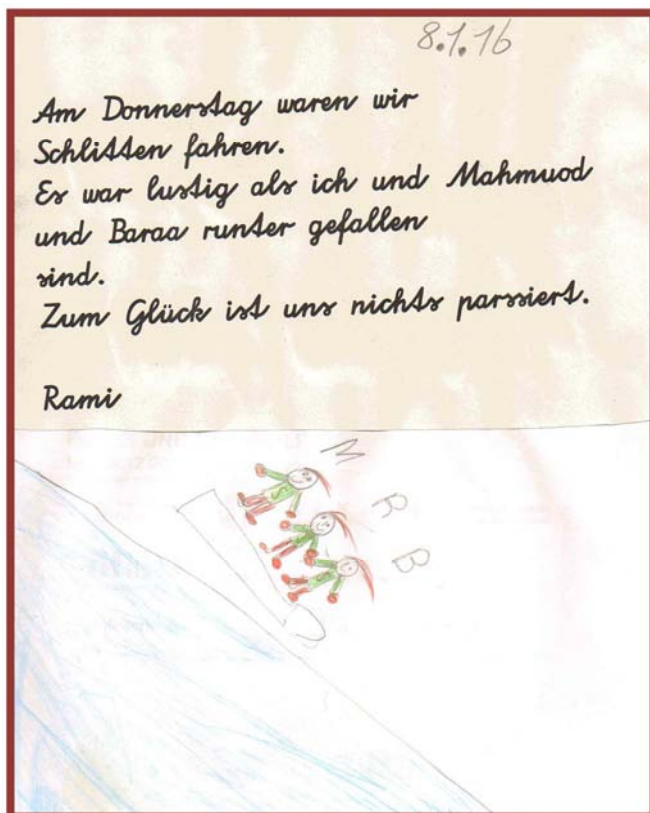 8.1.16
Am Donnerstag waren wir
Schlitten fahren.
Es war lustig als ich und Mahmuod
und Baraa runter gefallen
sind.
Zum Glück ist uns nichts parssiert.
Rami
M
R
B